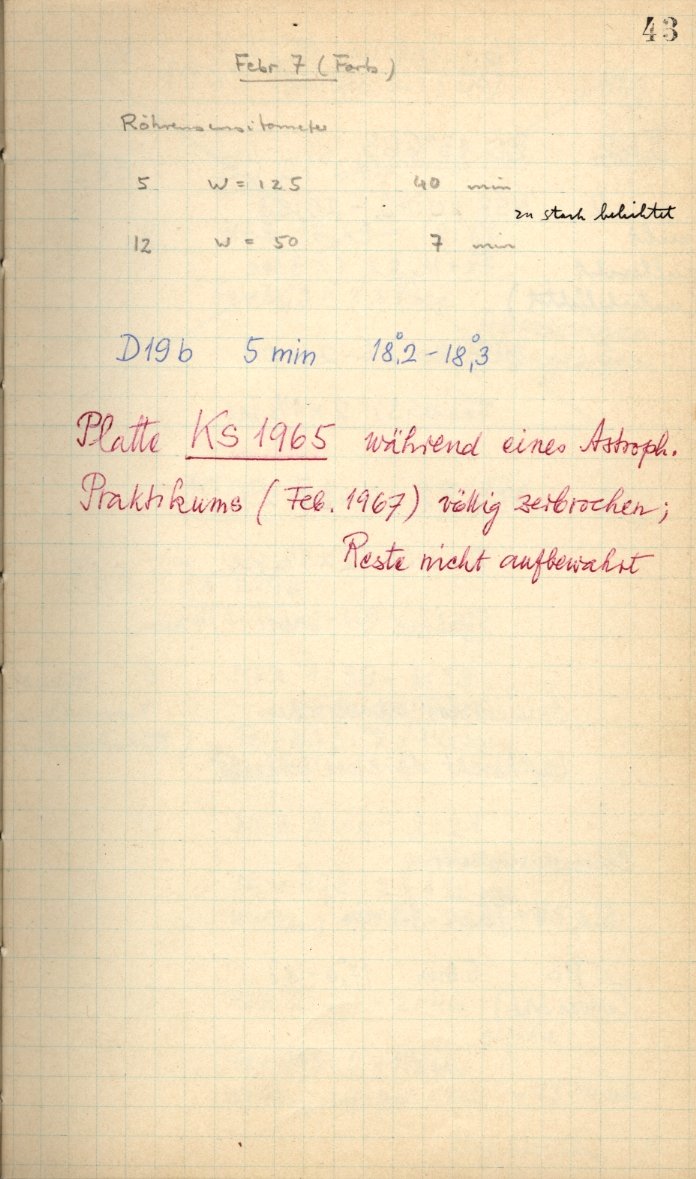 43
Febr. 7 (Forts.)
Röhrensensitometer
5 W = 125 40 min
zu stark belichtet
12 W = 50 7 min
D19b 5 min 18°,2 - 18°,3
Platte KS 1965 während eines Astroph.
Praktikums (Feb. 1967) völlig zerbrochen;
Reste nicht aufbewahrt